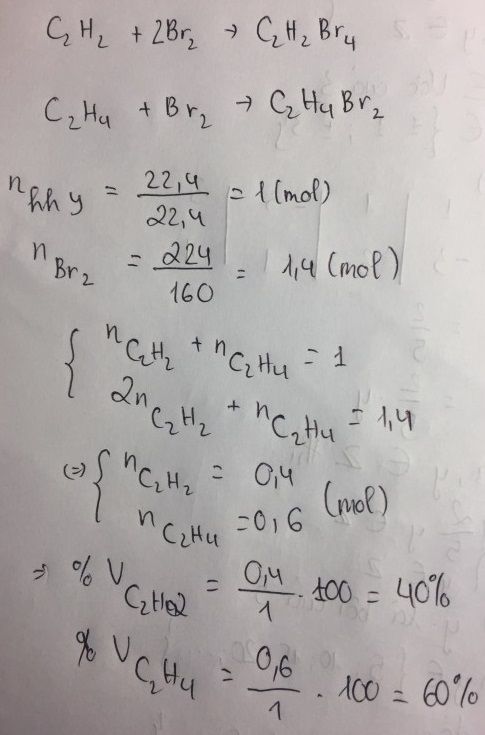 C₂H₂ + 2Br₂ → C₂H₂Br₄
C₂H₄ + Br₂ → C₂H₄Br₂
n hh y = 22,4/22,4 = 1 (mol)
n Br₂ = 224/160 = 1,4 (mol)
{ n C₂H₂ + n C₂H₄ = 1
2n C₂H₂ + n C₂H₄ = 1,4
(=) { n C₂H₂ = 0,4
n C₂H₄ = 0,6 (mol)
=> % V C₂H₂ = 0,4/1 . 100 = 40%
% V C₂H₄ = 0,6/1 . 100 = 60%